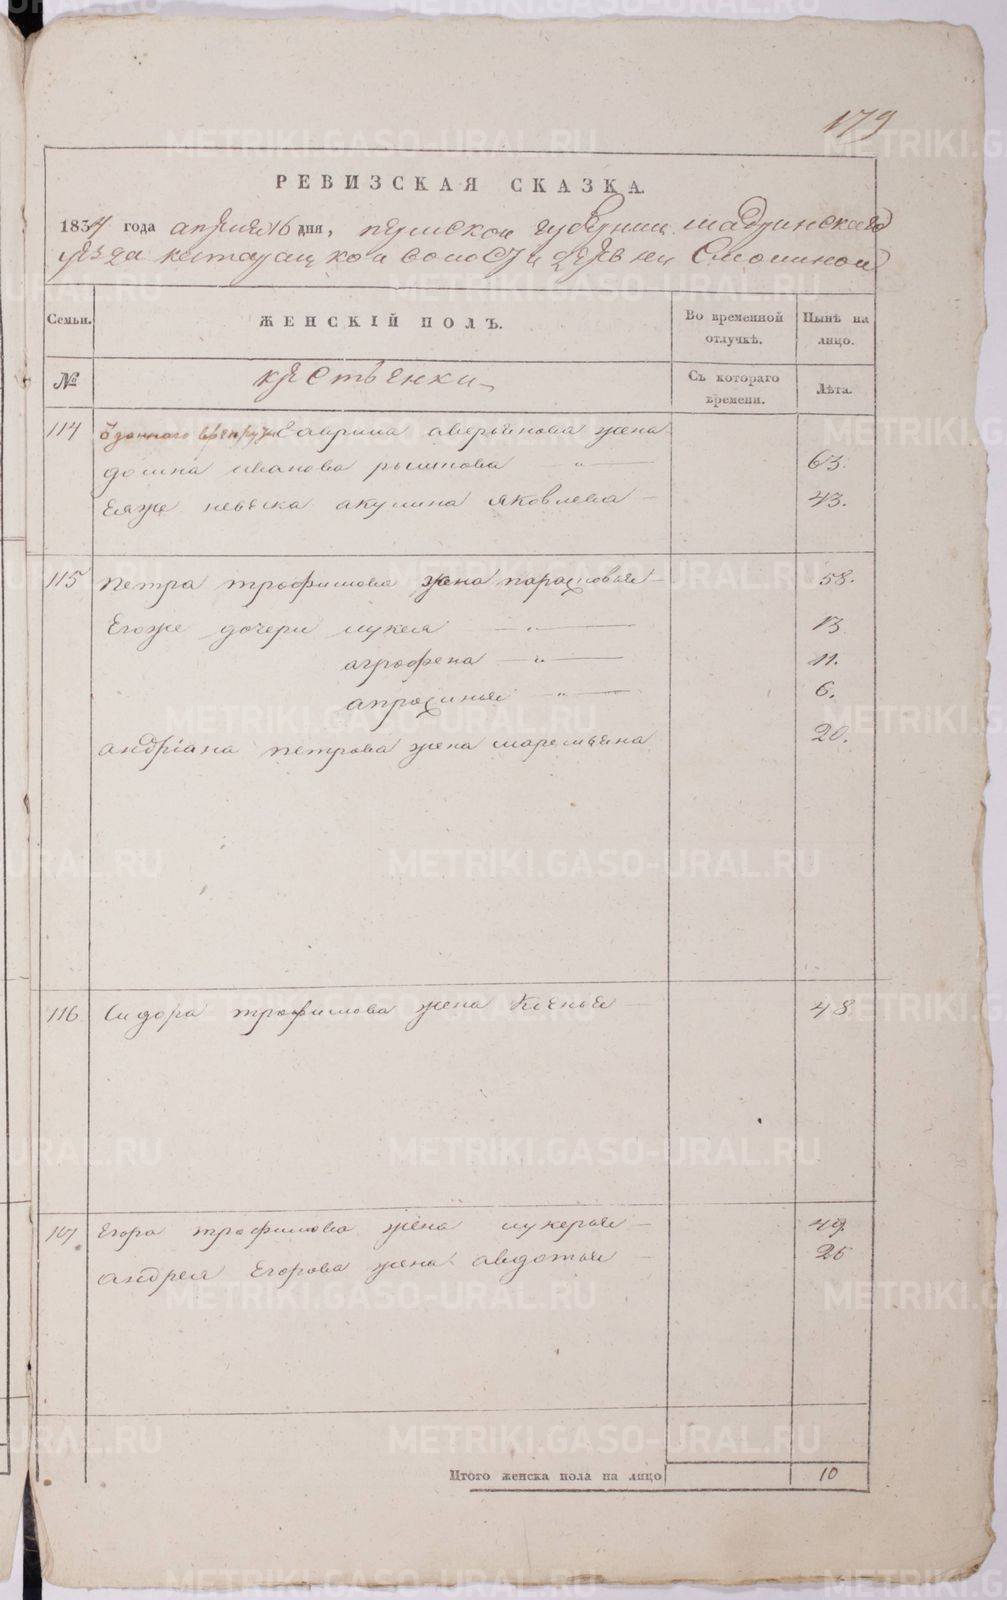 179
РЕВИЗСКАЯ СКАЗКА.
1834 года апреля 16 дня, пермской губернии шадринскаго
уезда катайской волости деревни Смолиной
Семьи.
ЖЕНСКІЙ ПОЛЪ.
Во временной отлучкѣ.
Нынѣ на лицо.
№
крестьенки
Съ котораго времени.
Лѣта.
114 Гаврила аверьянова жена
иванова 63.
Еяже невеска акулина яковлева 43.
115 петра трофимова жена парасковья 58.
Егоже дочери лукея 13
агрофена 11.
апросинья 6.
андріана петрова жена маремьяна 20.
116 Сидора трофимова жена Ксенья 48
117 Егора трофимова жена лукерья 49.
андрея Егорова жена авдотья 25
Итого женска пола на лицо 10
METRIKI.GASO-URAL.RU